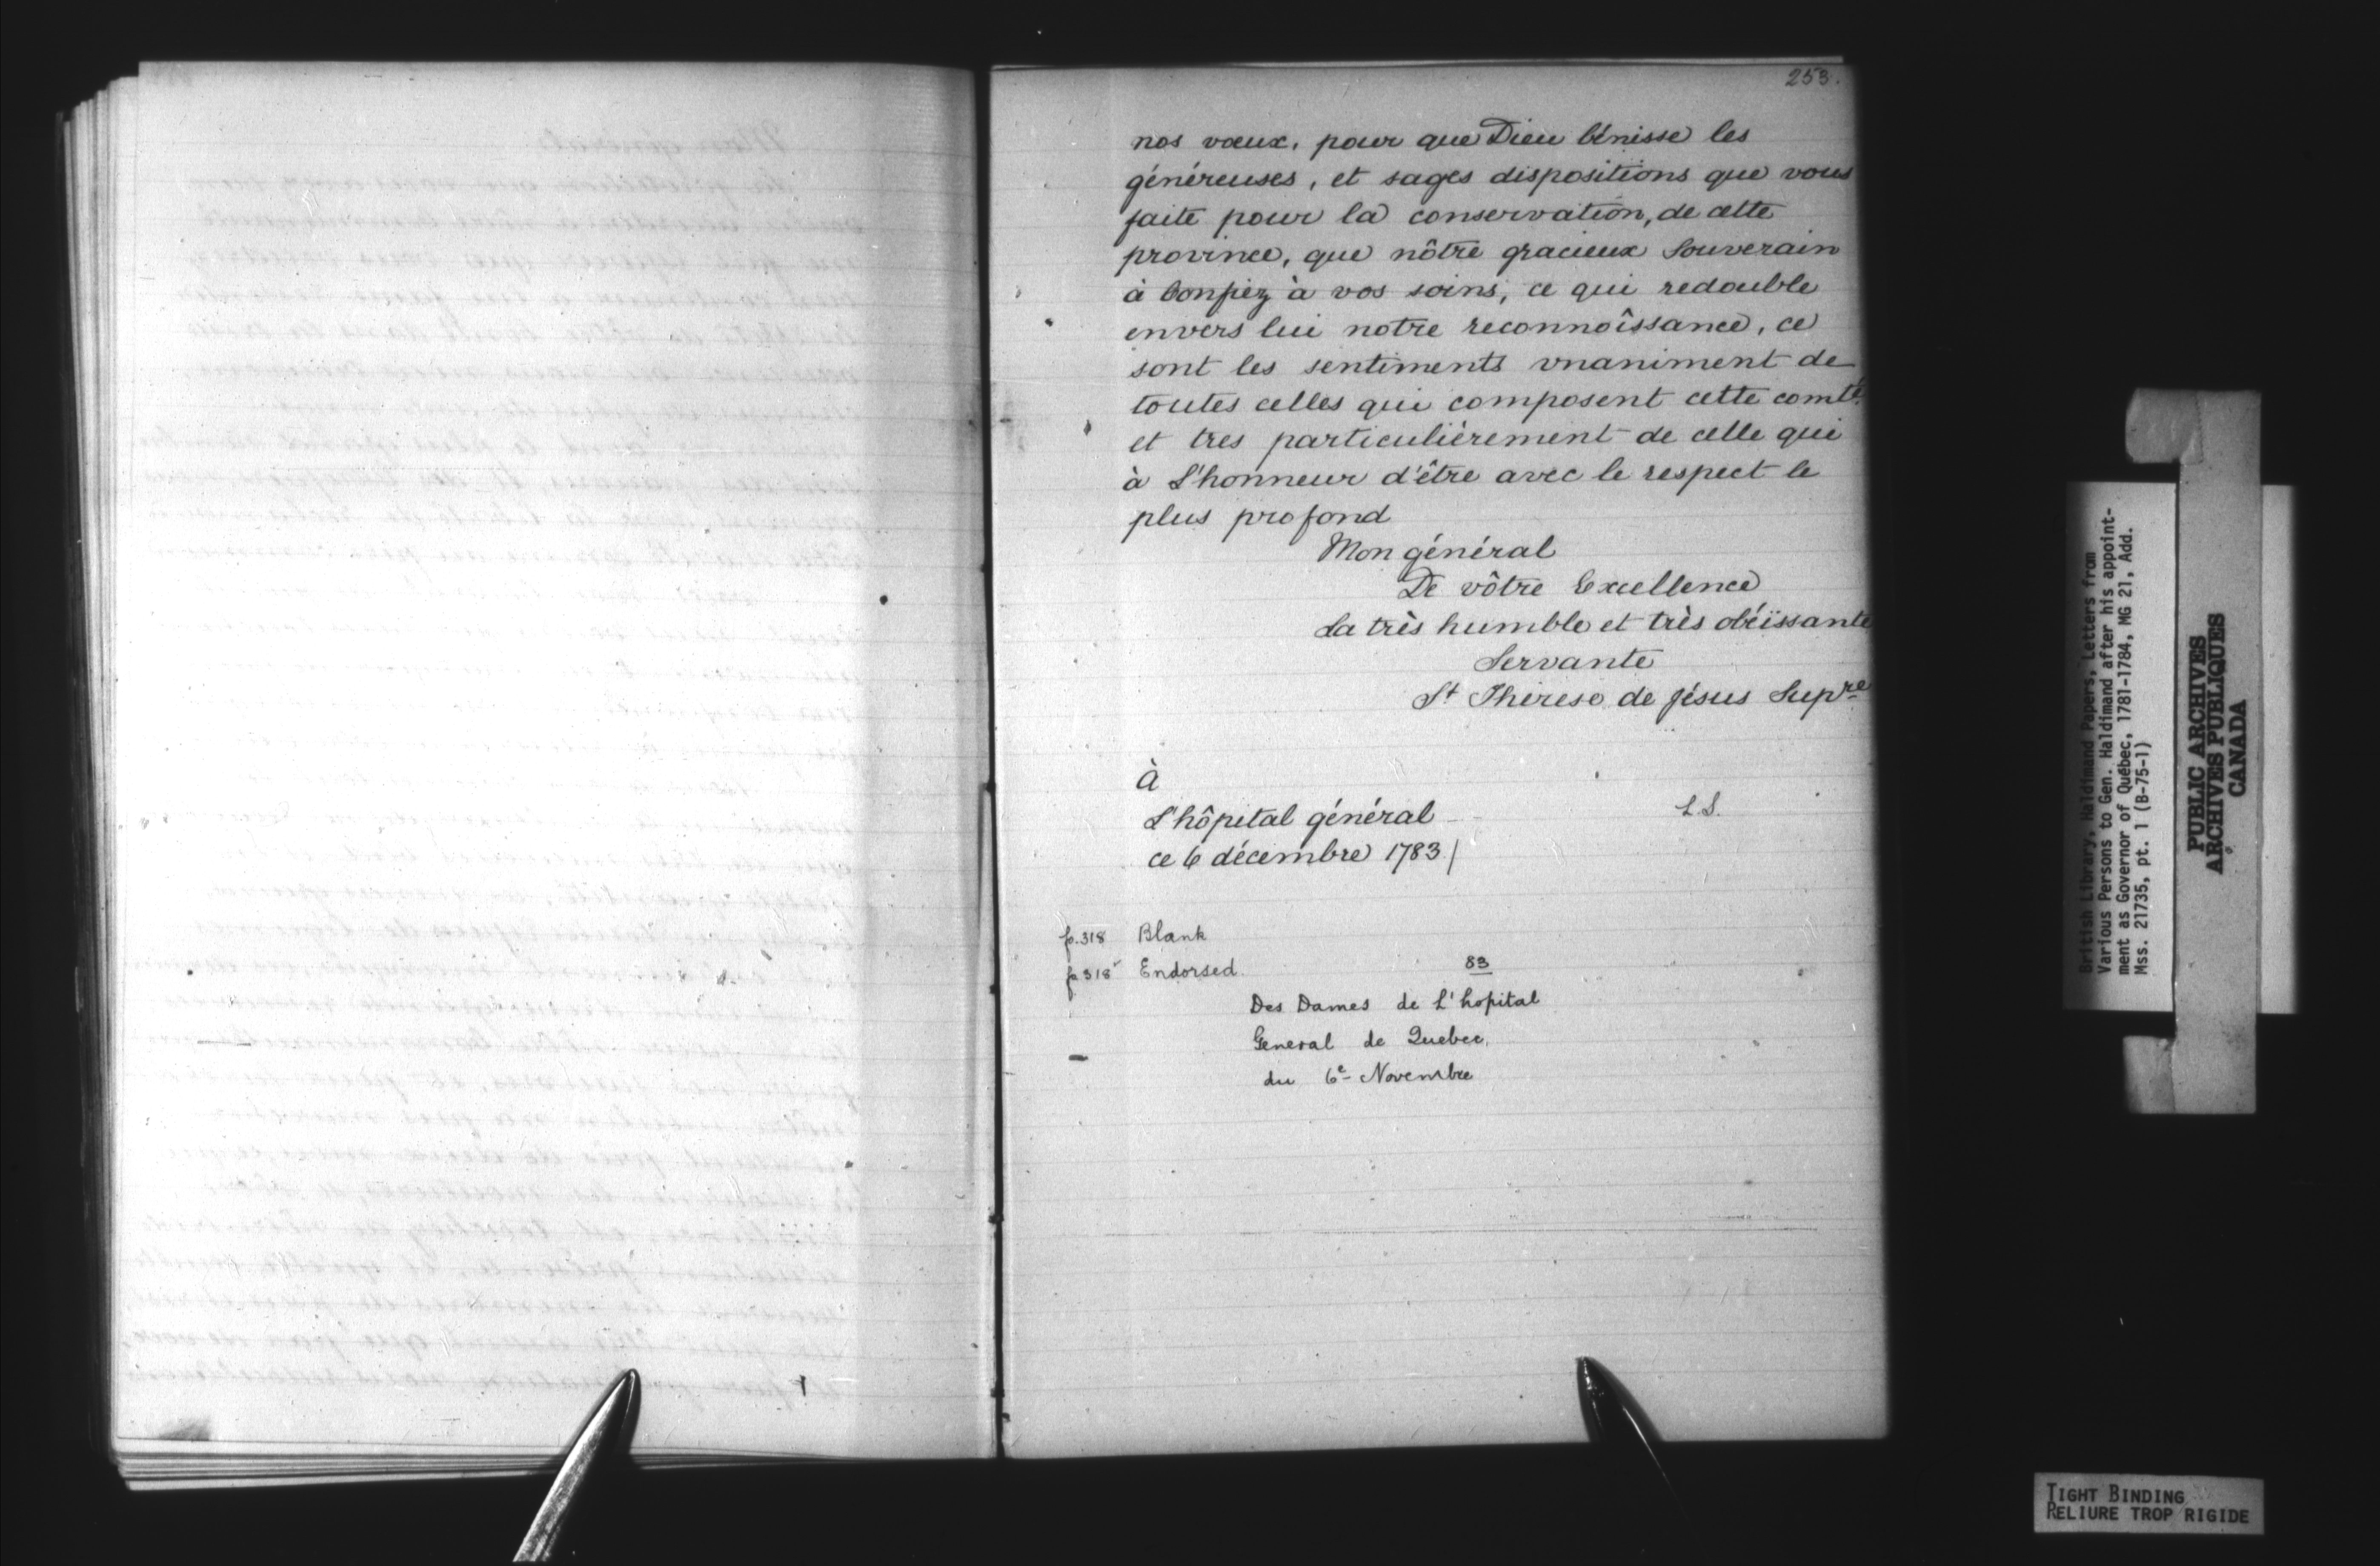 253.
nos vœux, pour que Dieu bénisse les
généreuses, et sages dispositions que vous
faite pour la conservation, de cette
province, que nôtre gracieux Souverain
à Confiez à vos soins, ce qui redouble
envers lui notre reconnoîssance, ce
sont les sentiments vnaniment de
toutes celles qui composent cette comté.
et tres particulièrement de celle qui
à L'honneur d'être avec le respect le
plus profond
Mon général
De vôtre Excellence
La très humble et très obéïssante
Servante
St Thérese de Jésus Supre
À
L'hôpital général
L.S.
ce 6 décembre 1783./
p.318 Blank
p.318v Endorsed.
83
Des Dames de L'hopital
General de Quebec,
du 6e Novembre
British Library, Haldimand Papers, Letters from
Various Persons to Gen. Haldimand after his appoint-
ment as Governor of Québec, 1781-1784, MG 21, Add.
Mss. 21735, pt. 1 (B-75-1)
PUBLIC ARCHIVES
ARCHIVES PUBLIQUES
CANADA
TIGHT BINDING
RELIURE TROP RIGIDE